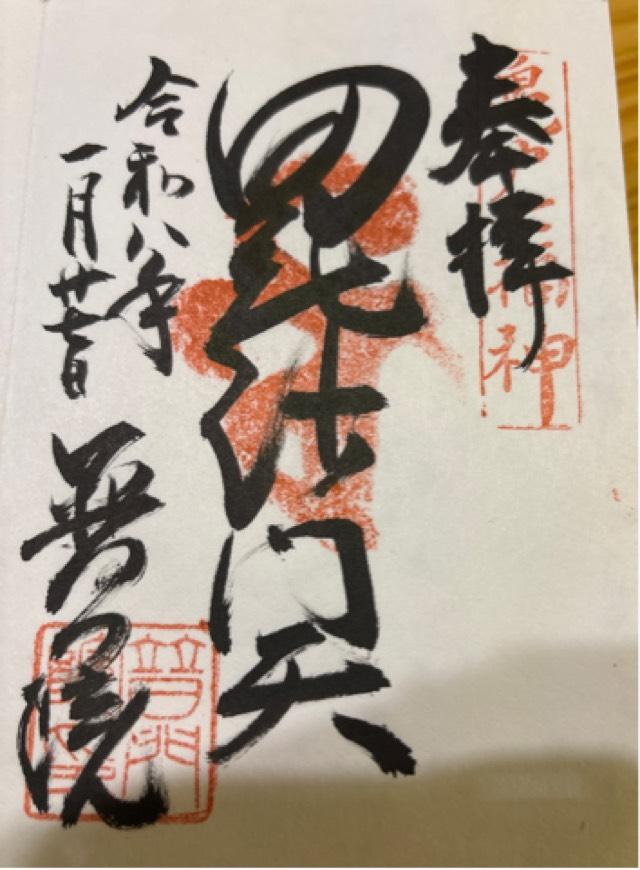 奉拝
福神
毘沙門天
令和八年
一月廿
普門院
普門